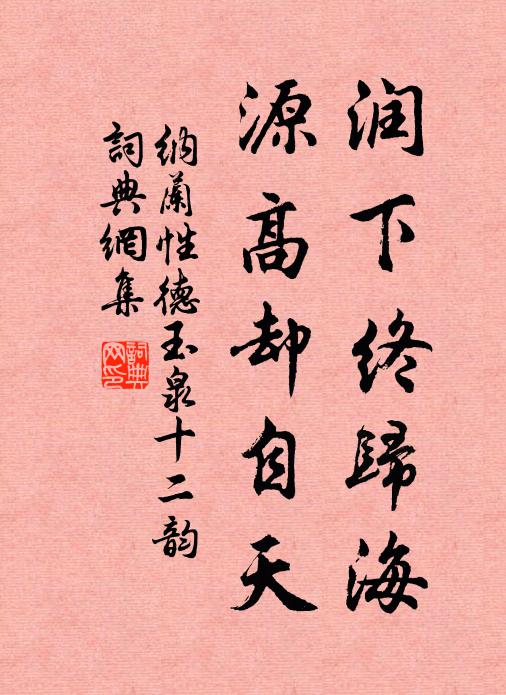 润下终歸海
源高却自天
纳蘭性德玉泉十二韵
詞典網集
詞典網印